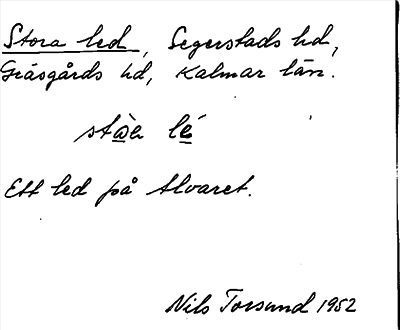 Stora led, Segerstads hd,
Gräsgårds hd, Kalmar län.
lé
Ett led på Alvaret.
Nils Torsund 1952